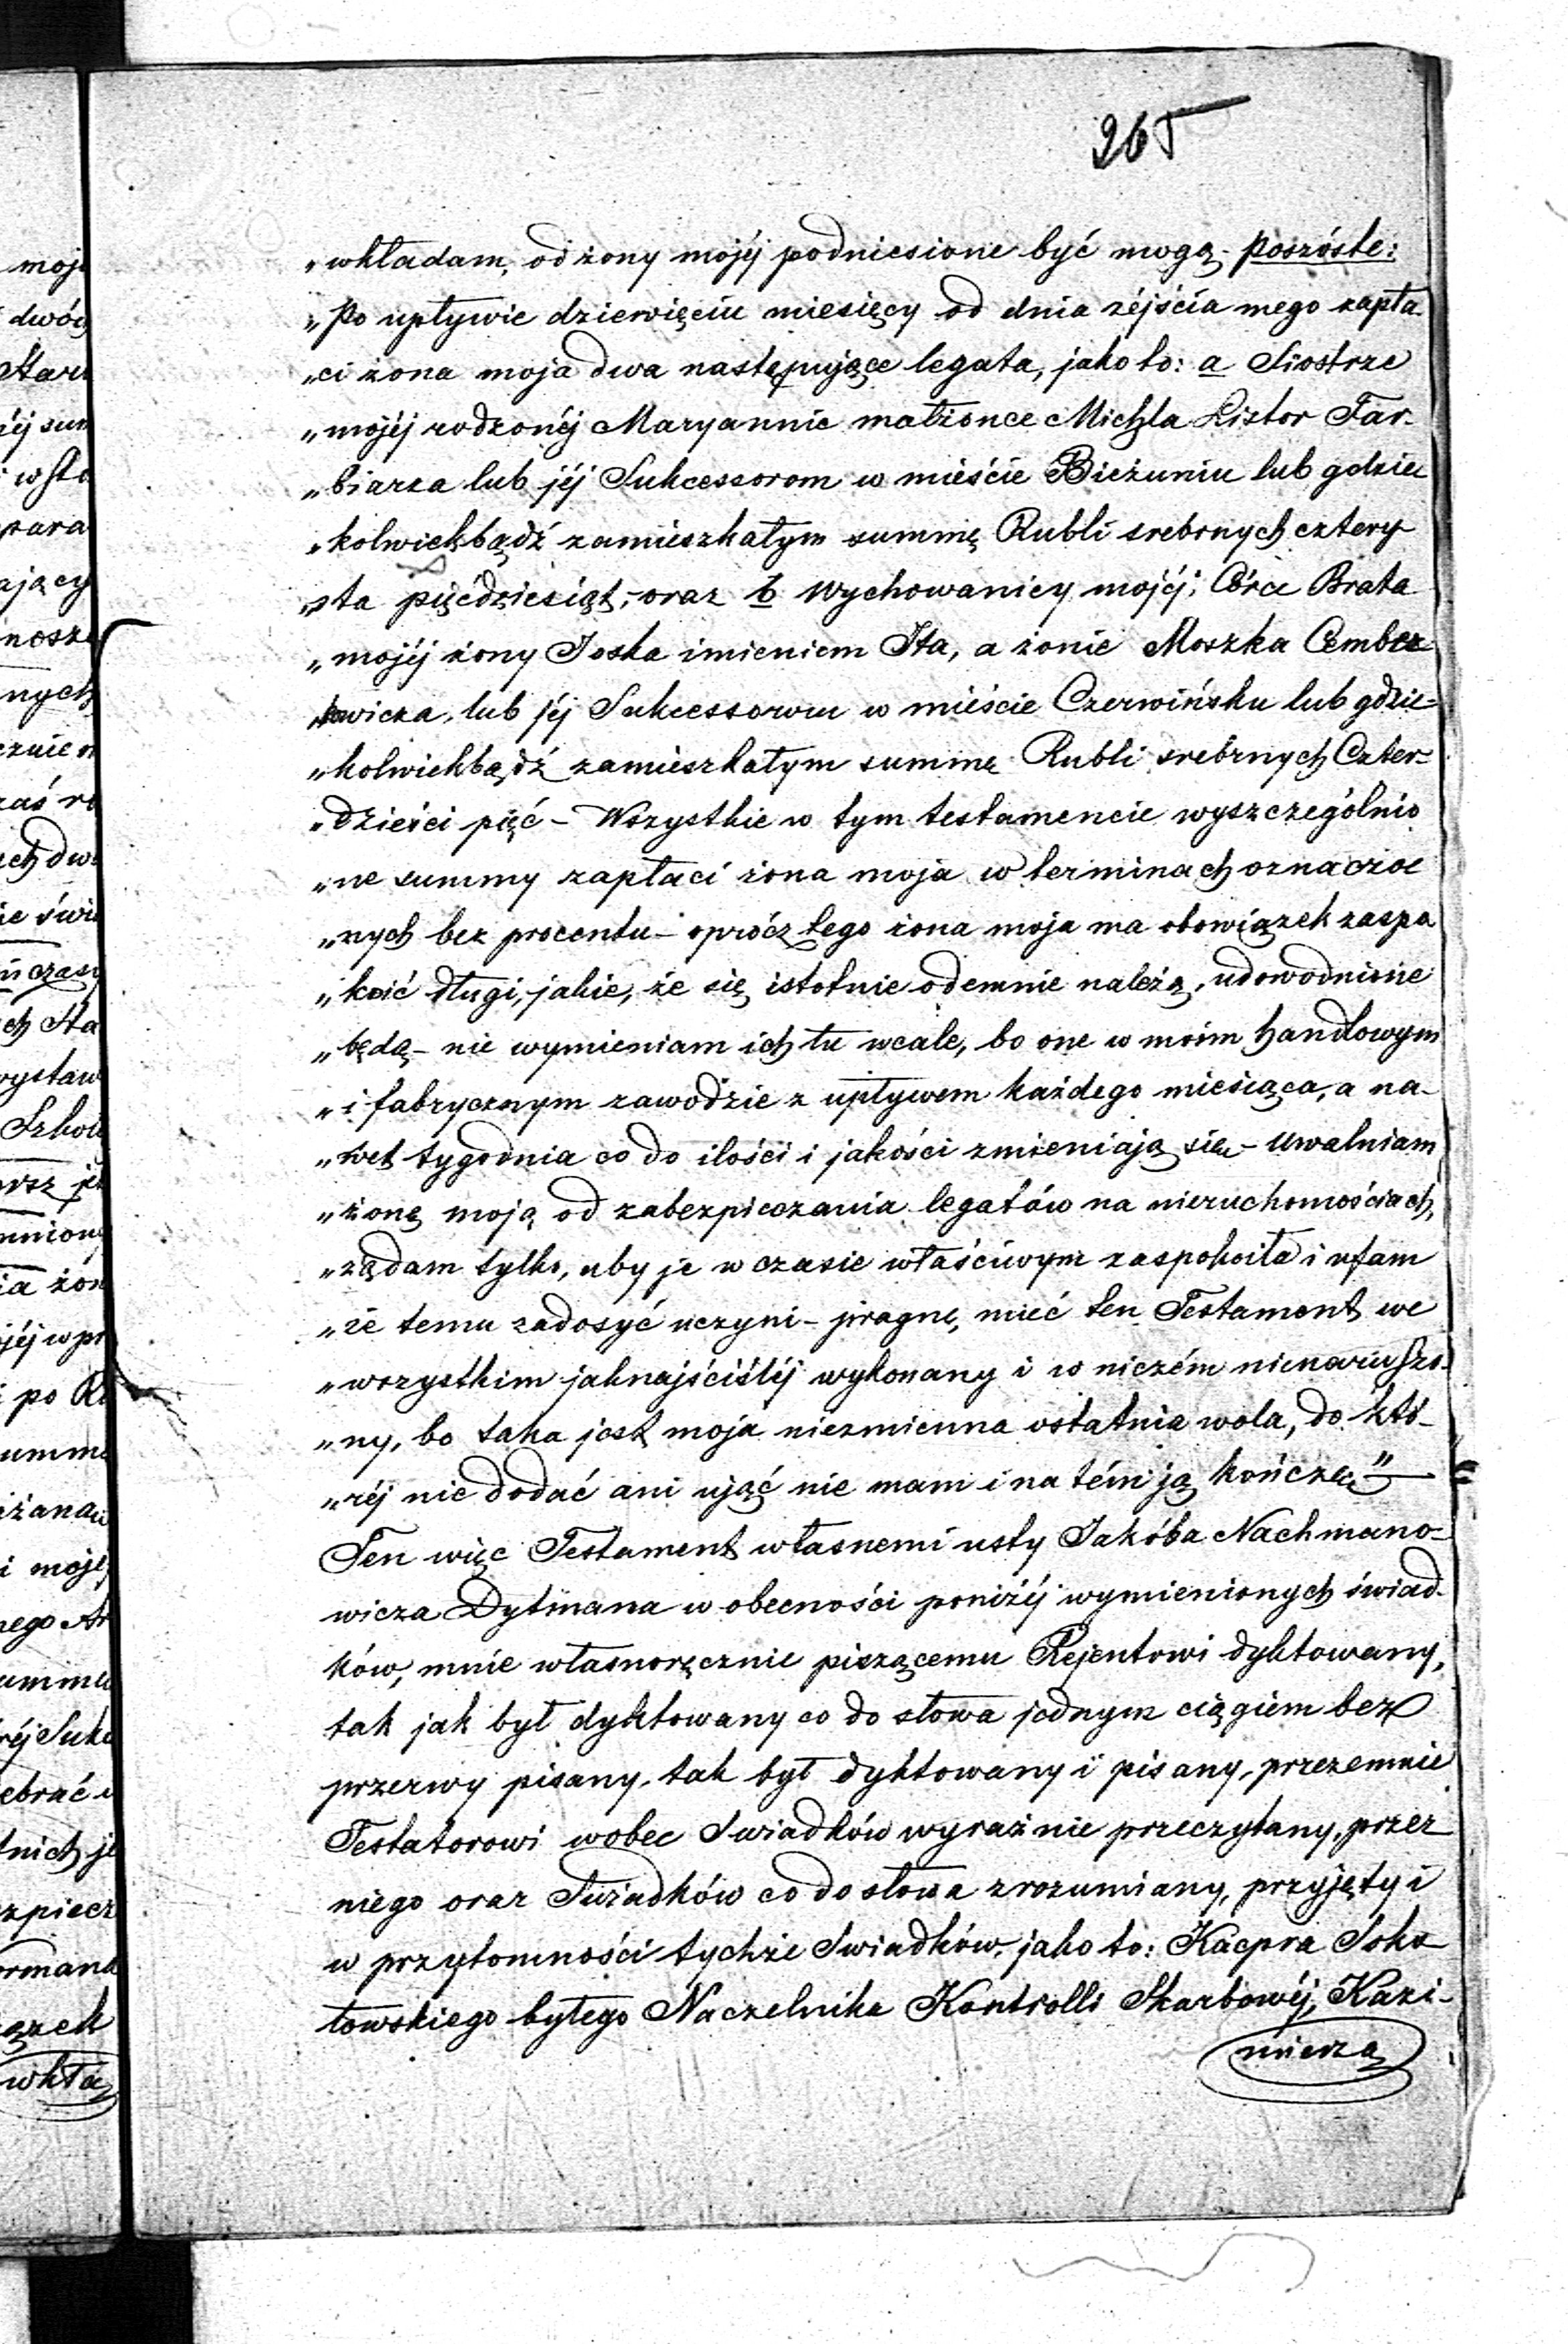 265
„wkładam, od żony mojéj podniesione być mogą - poszóste:
„Po upływie dziewięciu miesięcy od dnia zéjścia mego zapła-
„ci żona moja dwa następujące legata, jako to: a Siostrze
„mojéj rodzonéj Maryannie małżonce Michla Listor Far-
„biarza lub jéj Sukcessorom w mieście Bieżuniu lub gdzie
„kolwiekbądź zamieszkałym summę Rubli srebrnych cztery
„sta pięćdziesiąt, - oraz b Wychowanicy mojéj, Córce Brata
„mojéj żony Joska imieniem Ita, a żonie Moszka Cember
„kowicza, lub jéj Sukcessorom w mieście Czerwińsku lub gdzie=
„kolwiekbądź zamieszkałym summę Rubli srebrnych Czter-
„dzieści pięć - Wszystkie w tym testamencie wyszczególnio
„ne summy zapłaci żona moja w terminach oznaczo
„nych bez procentu - oprócz tego żona moja ma obowiązek zaspo
„koić długi, jakie, że się istotnie odemnie należą, udowodnione
„będą - nie wymieniam ich tu wcale, bo one w moim handlowym
„i fabrycznym zawodzie z upływem każdego miesiąca, a na-
„wet tygodnia co do ilości i jakości zmieniają się - Uwalniam
„żonę moją od zabezpieczania legatów na nieruchomościach,
„żądam tylko, aby je w czasie właściwym zaspokoiła i ufam
„że temu zadosyć uczyni - pragnę, mieć ten Testament we
„wszystkim jaknajściśléj wykonany i w niczém nienaruszo-
„ny, bo taka jest moja niezmienna ostatnia wola, do któ-
„réj nic dodać ani ująć nie mam i na tém ją kończę"
Ten więc Testament własnemi usty Jakóba Nachmano=
wicza Dytmana w obecności poniżéj wymienionych świad-
ków, mnie własnoręcznie piszącemu Rejentowi dyktowany,
tak jak był dyktowany co do słowa jednym ciągiem bez
przerwy pisany, tak był dyktowany i pisany, przezemnie
Testatorowi wobec Swiadków wyraźnie przeczytany, przez
niego oraz Swiadków co do słowa zrozumiany, przyjęty i
w przytomności tychże Swiadków, jako to: Kacpra Soko-
łowskiego byłego Naczelnika Kontrolli Skarbowéj, Kazi-
mierza